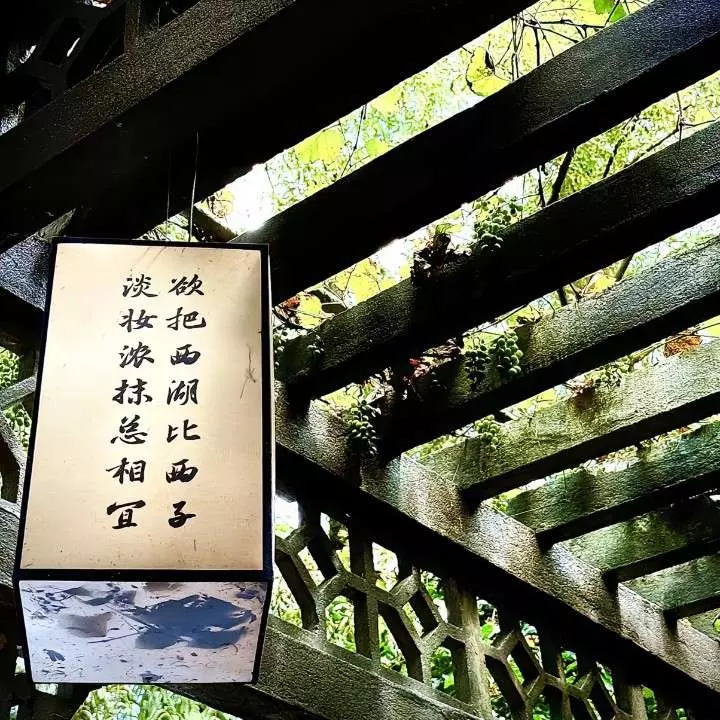 欲把西湖比西子
淡妆浓抹总相宜